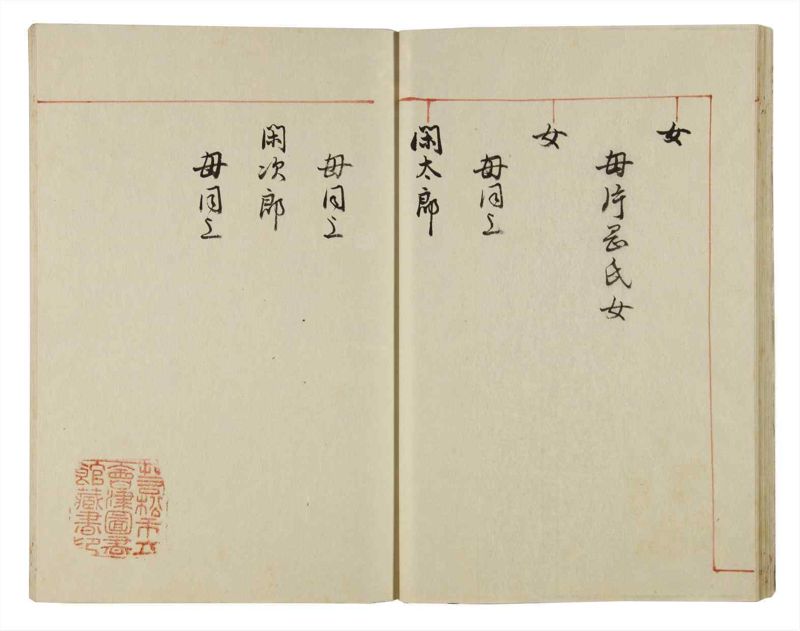 女
母片岡氏女
女
母同上
閑太郎
母同上
閑次郎
母同上
若松市立
會津圖書
館藏書印